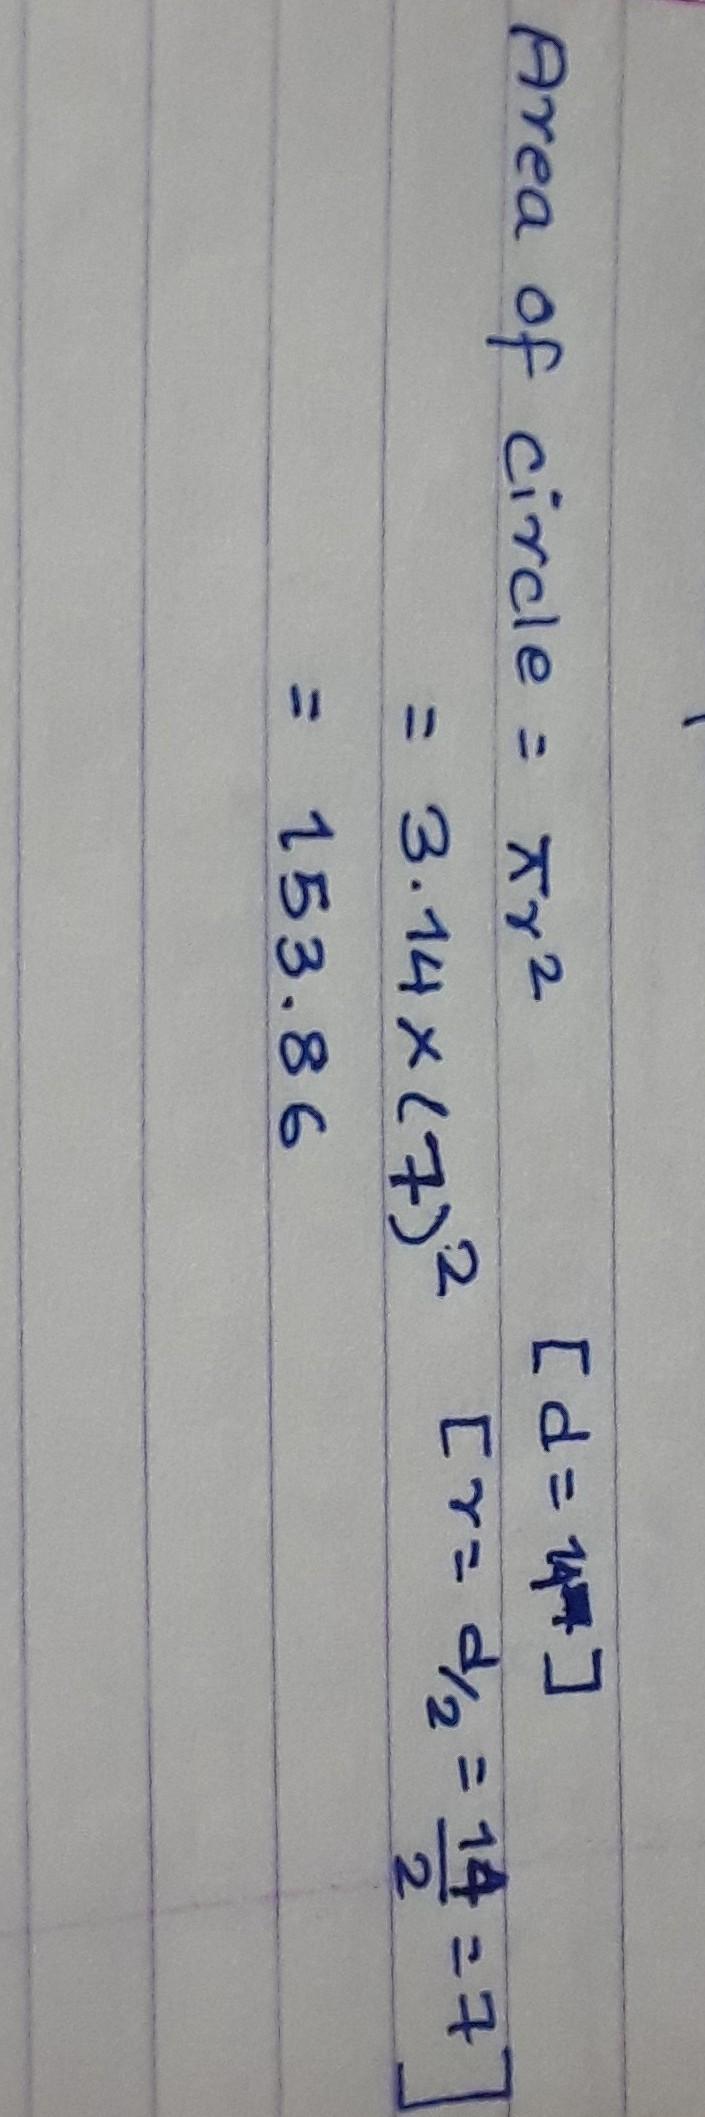 Area of circle = πr² [d = 14]
= 3.14 × (7)² [r = d/2 = 14/2 = 7]
= 153.86